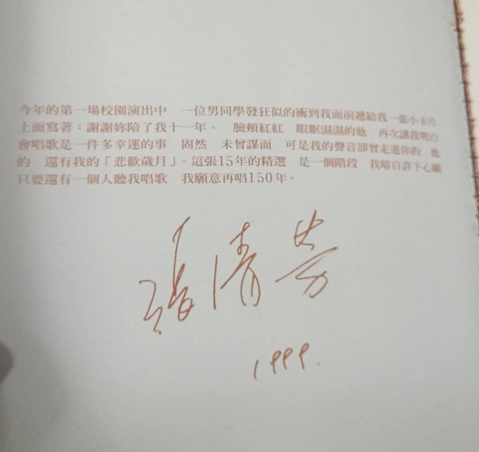 今年的第一場校園演出中　一位男同學發狂似的衝到我面前遞給我一張小卡片
上面寫著：謝謝妳陪了我十一年。　臉頰紅紅　眼眶濕濕的他　再次讓我明白
會唱歌是一件多幸運的事　固然　未曾謀面　可是我的聲音卻曾走進你的　他
的　還有我的「悲歡歲月」。這張15年的精選　是一個階段　我暗自許下心願
只要還有一個人聽我唱歌　我願意再唱150年。
張清芳
1999.